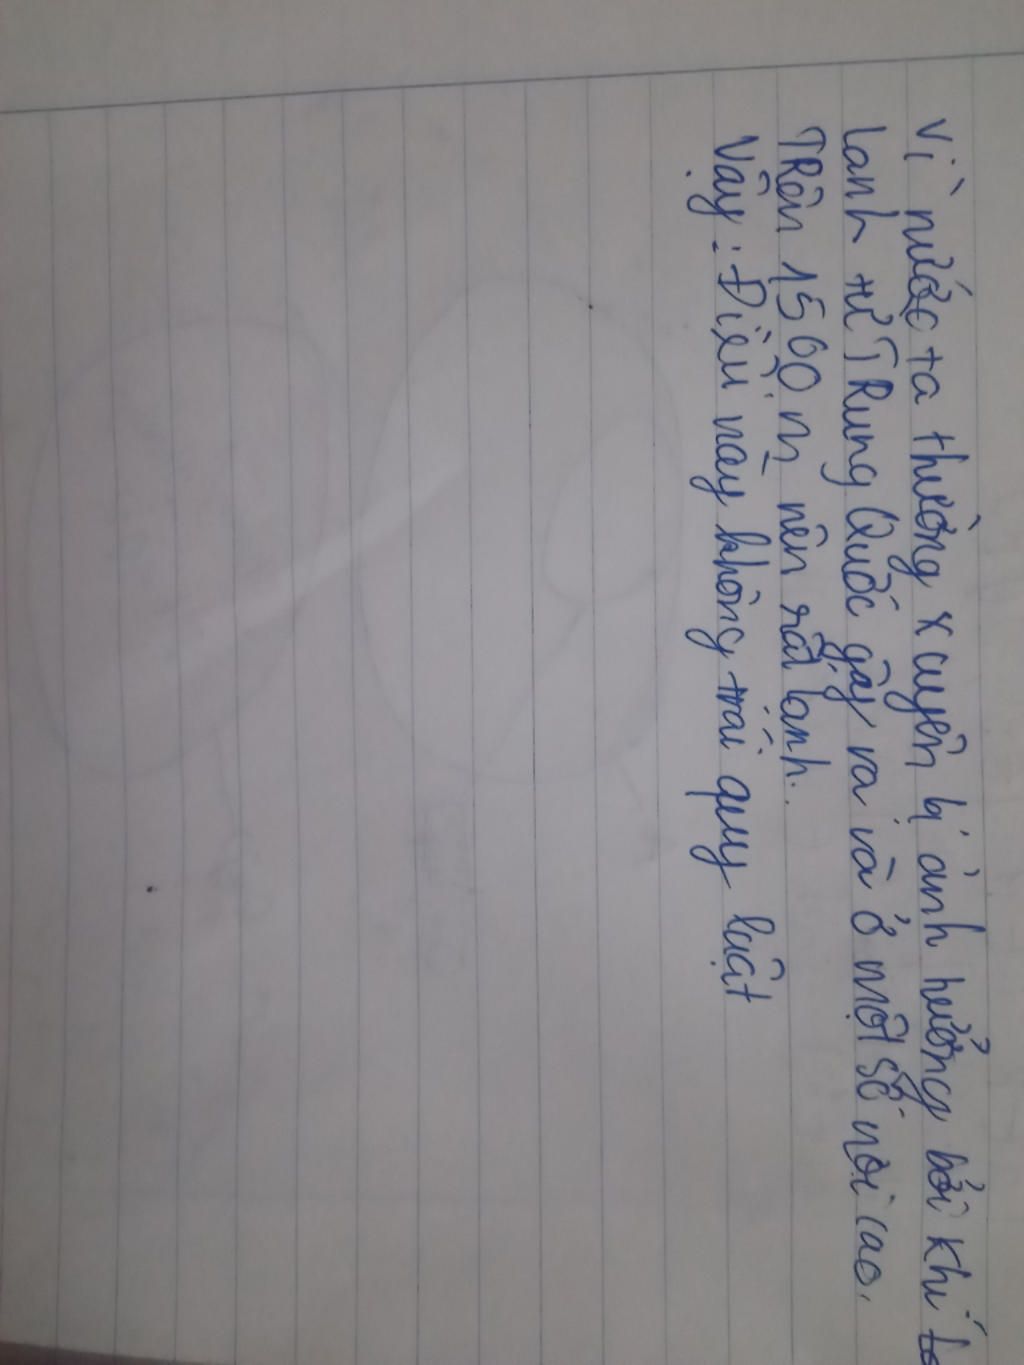 Vì nước ta thường xuyên bị ảnh hưởng bởi khí
lạnh từ TRung Quốc gây ra và ở một số nơi cao.
TRên 1500 m nên rất lạnh.
Vậy : Điều nay không trái quy luật